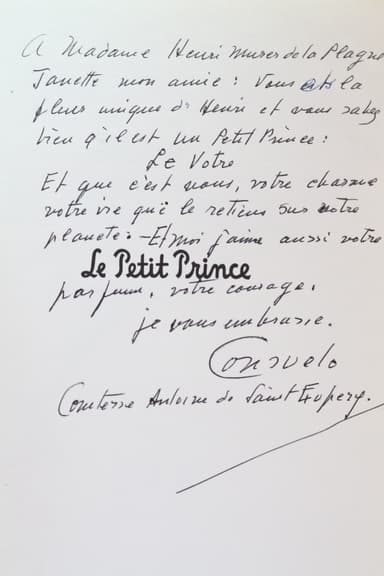 A Madame Henri Muser de la Plagne
Janette mon amie : Vous etes la
fleur unique de Henri et vous savez
bien q'il est un Petit Prince :
Le Votre
Et que c'est vous, votre charme
votre vie que le retiens sur notre
planete. - Et moi j'aime aussi votre
Le Petit Prince
parfum, votre courage.
je vous embrasse.
Consuelo
Comtesse Antoine de Saint Exupery.